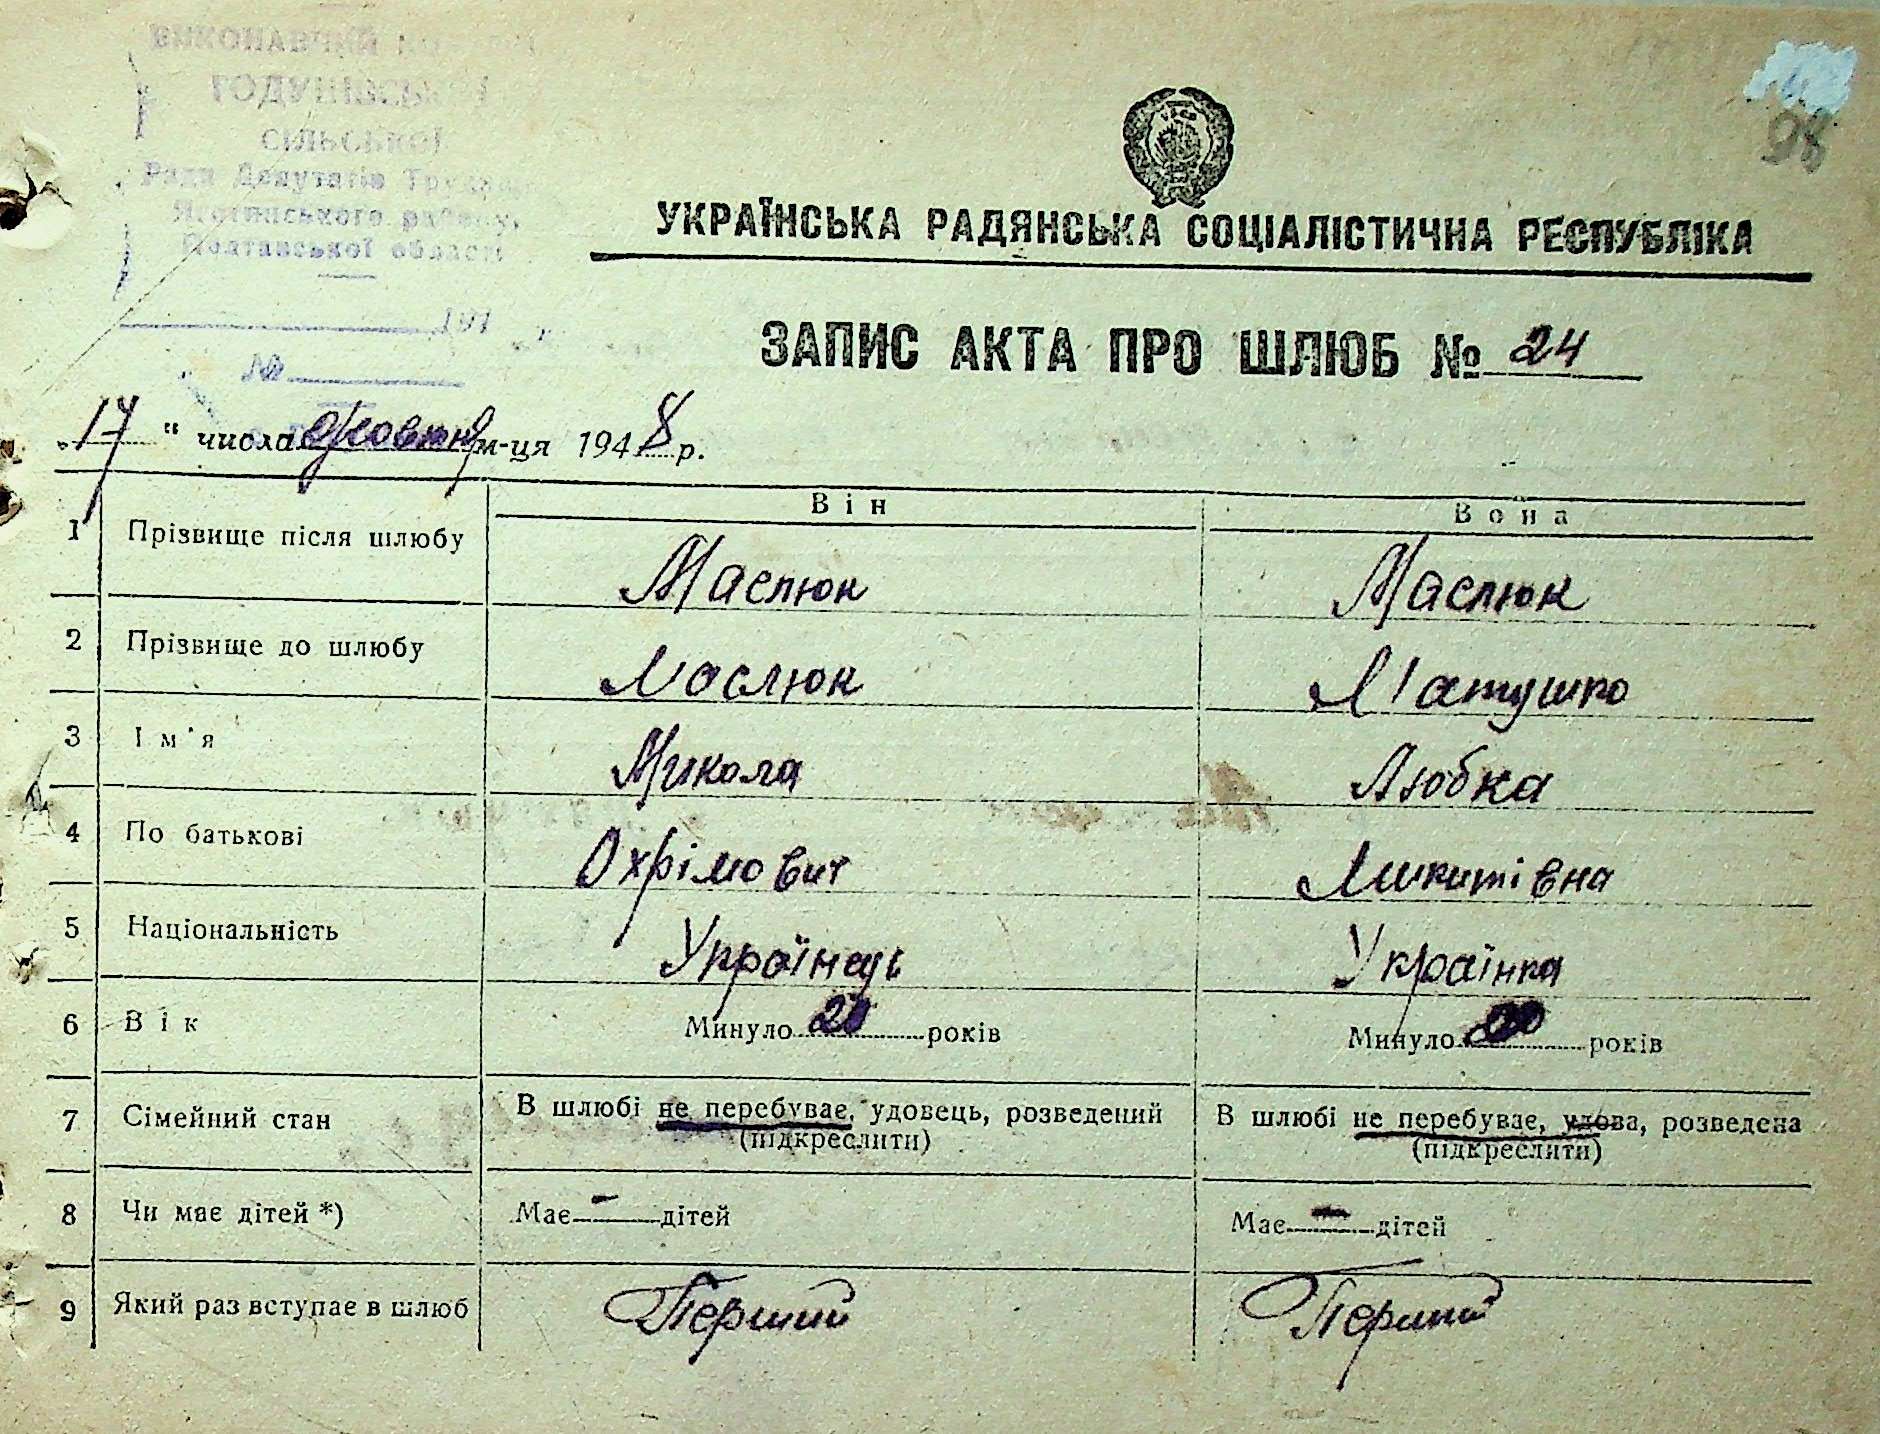 ВИКОНАВЧИЙ КОМІТЕТ
ГОДУНІВСЬКОЇ
СІЛЬСЬКОЇ
Ради Депутатів Трудящих
Яготинського району,
Полтавської області
194
№
98
УКРАЇНСЬКА РАДЯНСЬКА СОЦІАЛІСТИЧНА РЕСПУБЛІКА
ЗАПИС АКТА ПРО ШЛЮБ № 24
„17" числа жовтня м-ця 1948 р.
Він Вона
1 Прізвище після шлюбу Маслюк Маслюк
2 Прізвище до шлюбу Маслюк Матушко
3 Ім'я Микола Любка
4 По батькові Охрімович Микитівна
5 Національність Українець Українка
6 Вік Минуло 20 років Минуло 20 років
7 Сімейний стан В шлюбі не перебуває, удовець, розведений В шлюбі не перебуває, удова, розведена
(підкреслити) (підкреслити)
8 Чи має дітей *) Має – дітей Має – дітей
9 Який раз вступає в шлюб Перший Перший